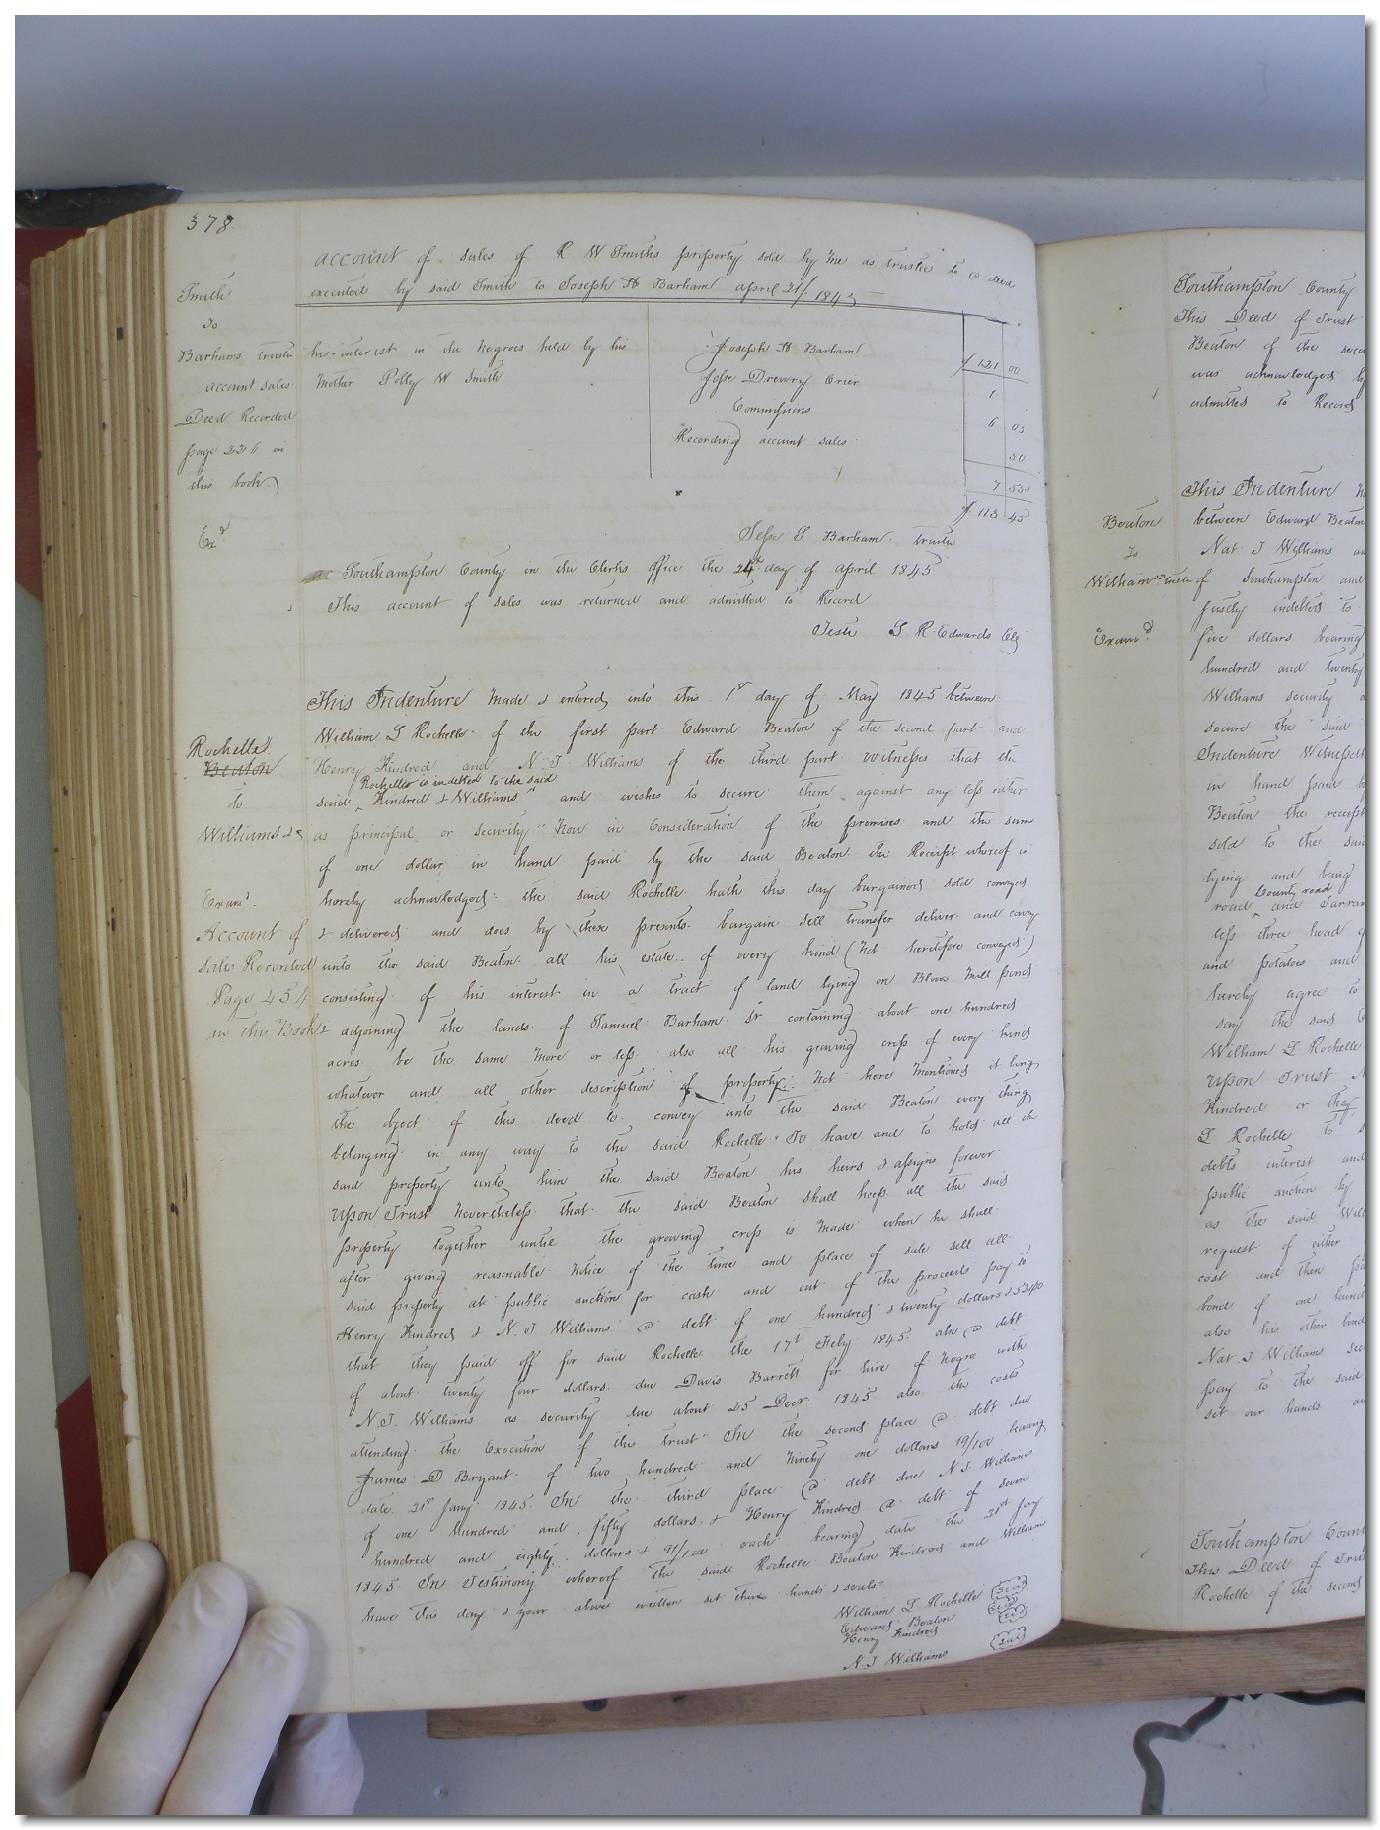 378
account of sales of R W Smiths property sold by me as trustee to a deed
executed by said Smith to Joseph H Barham april 21st 1845
Smith
to
Barhams trustee
account sales
Deed Recorded
page 226 in
this book
Exd
his interest in the Negroes held by his
Mother Polly W Smith
Joseph H Barham
$ 121 00
Jesse Drewry Crier
1
Commissions
6 05
Recording account sales
50
7 55
$ 113 45
Jesse S Barham trustee
Southampton County in the Clerks office the 24th day of april 1845
This account of sales was returned and admitted to Record
Teste L R Edwards Clk
Rochelle
Beaton
to
Williams &c
Examd.
Account of
Sales Recorded
Page 454
in this Book
This Indenture Made & entered into this 1st day of May 1845 between
William L Rochelle of the first part Edward Beaton of the second part and
Henry Kindred and N. J. Williams of the third part witnesses that the
Rochelle is indebted to the said
said Kindred & Williams and wishes to secure them against any loss either
as principal or security Now in Consideration of the premises and the sum
of one dollar in hand paid by the said Beaton the Receipt whereof is
hereby acknowledged the said Rochelle hath this day bargained sold conveyed
& delivered and does by these presents bargain sell transfer deliver and convey
unto the said Beaton all his estate of every kind (Not heretofore conveyed)
consisting of his interest in a tract of land lying on Blows Mill pond
& adjoining the lands of Samuel Barham Sr containing about one hundred
acres be the same more or less also all his growing crop of every kind
whatever and all other description of property Not here Mentioned it being
the object of this deed to convey unto the said Beaton every thing
belonging in any way to the said Rochelle To have and to hold all the
said property unto him the said Beaton his heirs & assigns forever
Upon Trust Nevertheless that the said Beaton shall keep all the said
property together until the growing crop is made when he shall
after giving reasonable Notice of the time and place of sale sell all
said property at public auction for cash and out of the proceeds pay to
Henry Kindred & N. J. Williams a debt of one hundred & twenty dollars &
that they paid off for said Rochelle the 17th Feby 1845 also a debt
of about twenty four dollars due Davis Barrett for hire of Negro with
N. J. Williams as security due about 25 Decr 1845 also the costs
attending the Execution of this trust In the second place a debt due
James D Bryant of two hundred and Ninety one dollars 19/100 bearing
date 21st Jany 1845. In the third place a debt due N. J. Williams
of one hundred and fifty dollars & Henry Kindred a debt of seven
hundred and eighty dollars & 91/100 each bearing date the 21st Jay
1845. In Testimony whereof the said Rochelle Beaton Kindred and William
have this day & year above written set their hands & seals
William L Rochelle Seal
Edward Beaton Seal
Henry Kindred Seal
N. J. Williams Seal
Southampton County
This Deed of Trust
Beaton of the
was acknowledged
admitted to Record
Beaton
to
Williams
Examd
This Indenture
between Edward Beaton
Nat J Williams
of Southampton and
justly indebted to
five dollars bearing
hundred and twenty
Williams security
secure the said
Indenture Witnesseth
in hand paid
Beaton the receipt
sold to the said
lying and being
County road
road and
less three head
and potatoes and
hereby agree to
say the said
William L Rochelle
Upon Trust
Kindred or they
L Rochelle to
debts interest and
public auction by
as the said
request of either
cost and then
bond of one
also his other bond
Nat. J William
pay to the said
set our hands
Southampton
This Deed of
Rochelle of the second